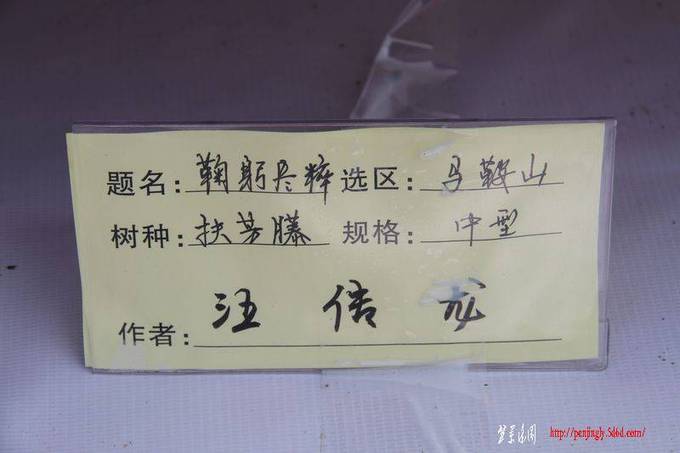 题名:鞠躬尽粹 选区:马鞍山
树种:扶芳藤 规格:中型
作者:汪传龙
http://penjingly.5d6d.com/